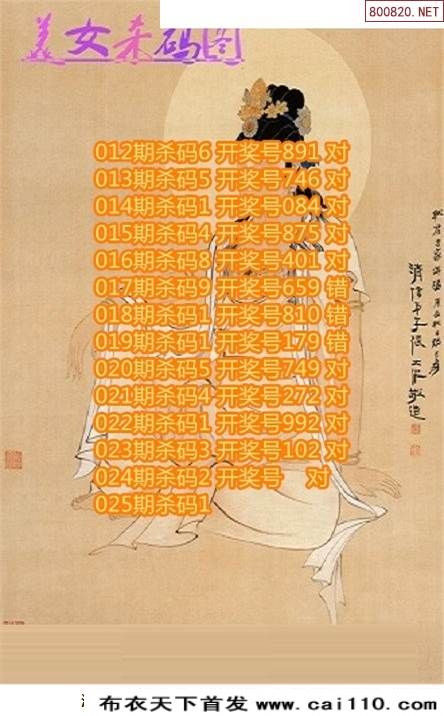 800820.NET
美女杀码图
012期杀码6 开奖号891 对
013期杀码5 开奖号746 对
014期杀码1 开奖号084 对
015期杀码4 开奖号875 对
016期杀码8 开奖号401 对
017期杀码9 开奖号659 错
018期杀码1 开奖号810 错
019期杀码1 开奖号179 错
020期杀码5 开奖号749 对
021期杀码4 开奖号272 对
022期杀码1 开奖号992 对
023期杀码3 开奖号102 对
024期杀码2 开奖号 对
025期杀码1
布衣天下首发 www.cai110.com